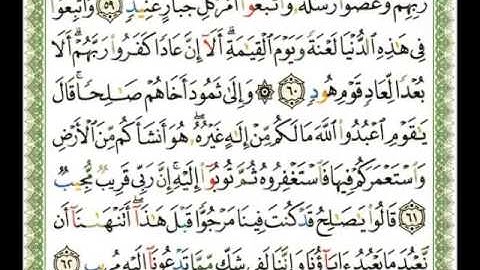 رَبِّهِمْ وَعَصَوْا۟ رُسُلَهُۥ وَٱتَّبَعُوٓا۟ أَمْرَ كُلِّ جَبَّارٍ عَنِيدٍ ٥٩ وَأُتْبِعُوا۟
فِى هَٰذِهِ ٱلدُّنْيَا لَعْنَةً وَيَوْمَ ٱلْقِيَٰمَةِ ۗ أَلَآ إِنَّ عَادًا كَفَرُوا۟ رَبَّهُمْ ۗ أَلَا
بُعْدًا لِّعَادٍ قَوْمِ هُودٍ ٦٠ ۞ وَإِلَىٰ ثَمُودَ أَخَاهُمْ صَٰلِحًا ۚ قَالَ
يَٰقَوْمِ ٱعْبُدُوا۟ ٱللَّهَ مَا لَكُم مِّنْ إِلَٰهٍ غَيْرُهُۥ ۖ هُوَ أَنشَأَكُم مِّنَ ٱلْأَرْضِ
وَٱسْتَعْمَرَكُمْ فِيهَا فَٱسْتَغْفِرُوهُ ثُمَّ تُوبُوٓا۟ إِلَيْهِ ۚ إِنَّ رَبِّى قَرِيبٌ مُّجِيبٌ
٦١ قَالُوا۟ يَٰصَٰلِحُ قَدْ كُنتَ فِينَا مَرْجُوًّا قَبْلَ هَٰذَآ ۖ أَتَنْهَىٰنَآ أَن
نَّعْبُدَ مَا يَعْبُدُ ءَابَآؤُنَا وَإِنَّنَا لَفِى شَكٍّ مِّمَّا تَدْعُونَآ إِلَيْهِ مُرِيبٍ ٦٢